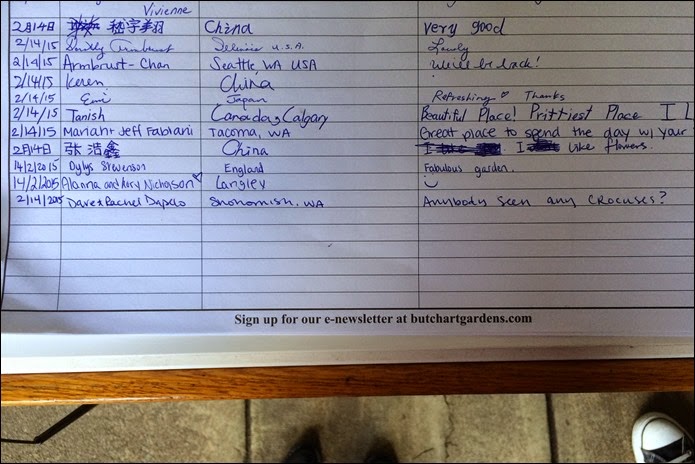 Vivienne
2月14日 宇翔 China very good
2/14/15 Emily Armbrust U.S.A. Lovely
2/14/15 Armbrust-Chan Seattle WA USA We'll be back!
2/14/15 Keren China
2/14/15 Emi Japan Refreshing ♡ Thanks
2/14/15 Tanish Canada, Calgary Beautiful Place! Prittiest Place I L
2/14/15 Mariah + Jeff Fabiani Tacoma, WA Great place to spend the day w/ your
2月14日 张浩鑫 China I I like flowers.
14/2/2015 Dylys Stevenson England Fabulous garden.
14/2/2015 Alanna and Rory Nicholson ♡ Langley
2/14/2015 Dave + Rachel Snohomish, WA Anybody seen any crocuses?
Sign up for our e-newsletter at butchartgardens.com